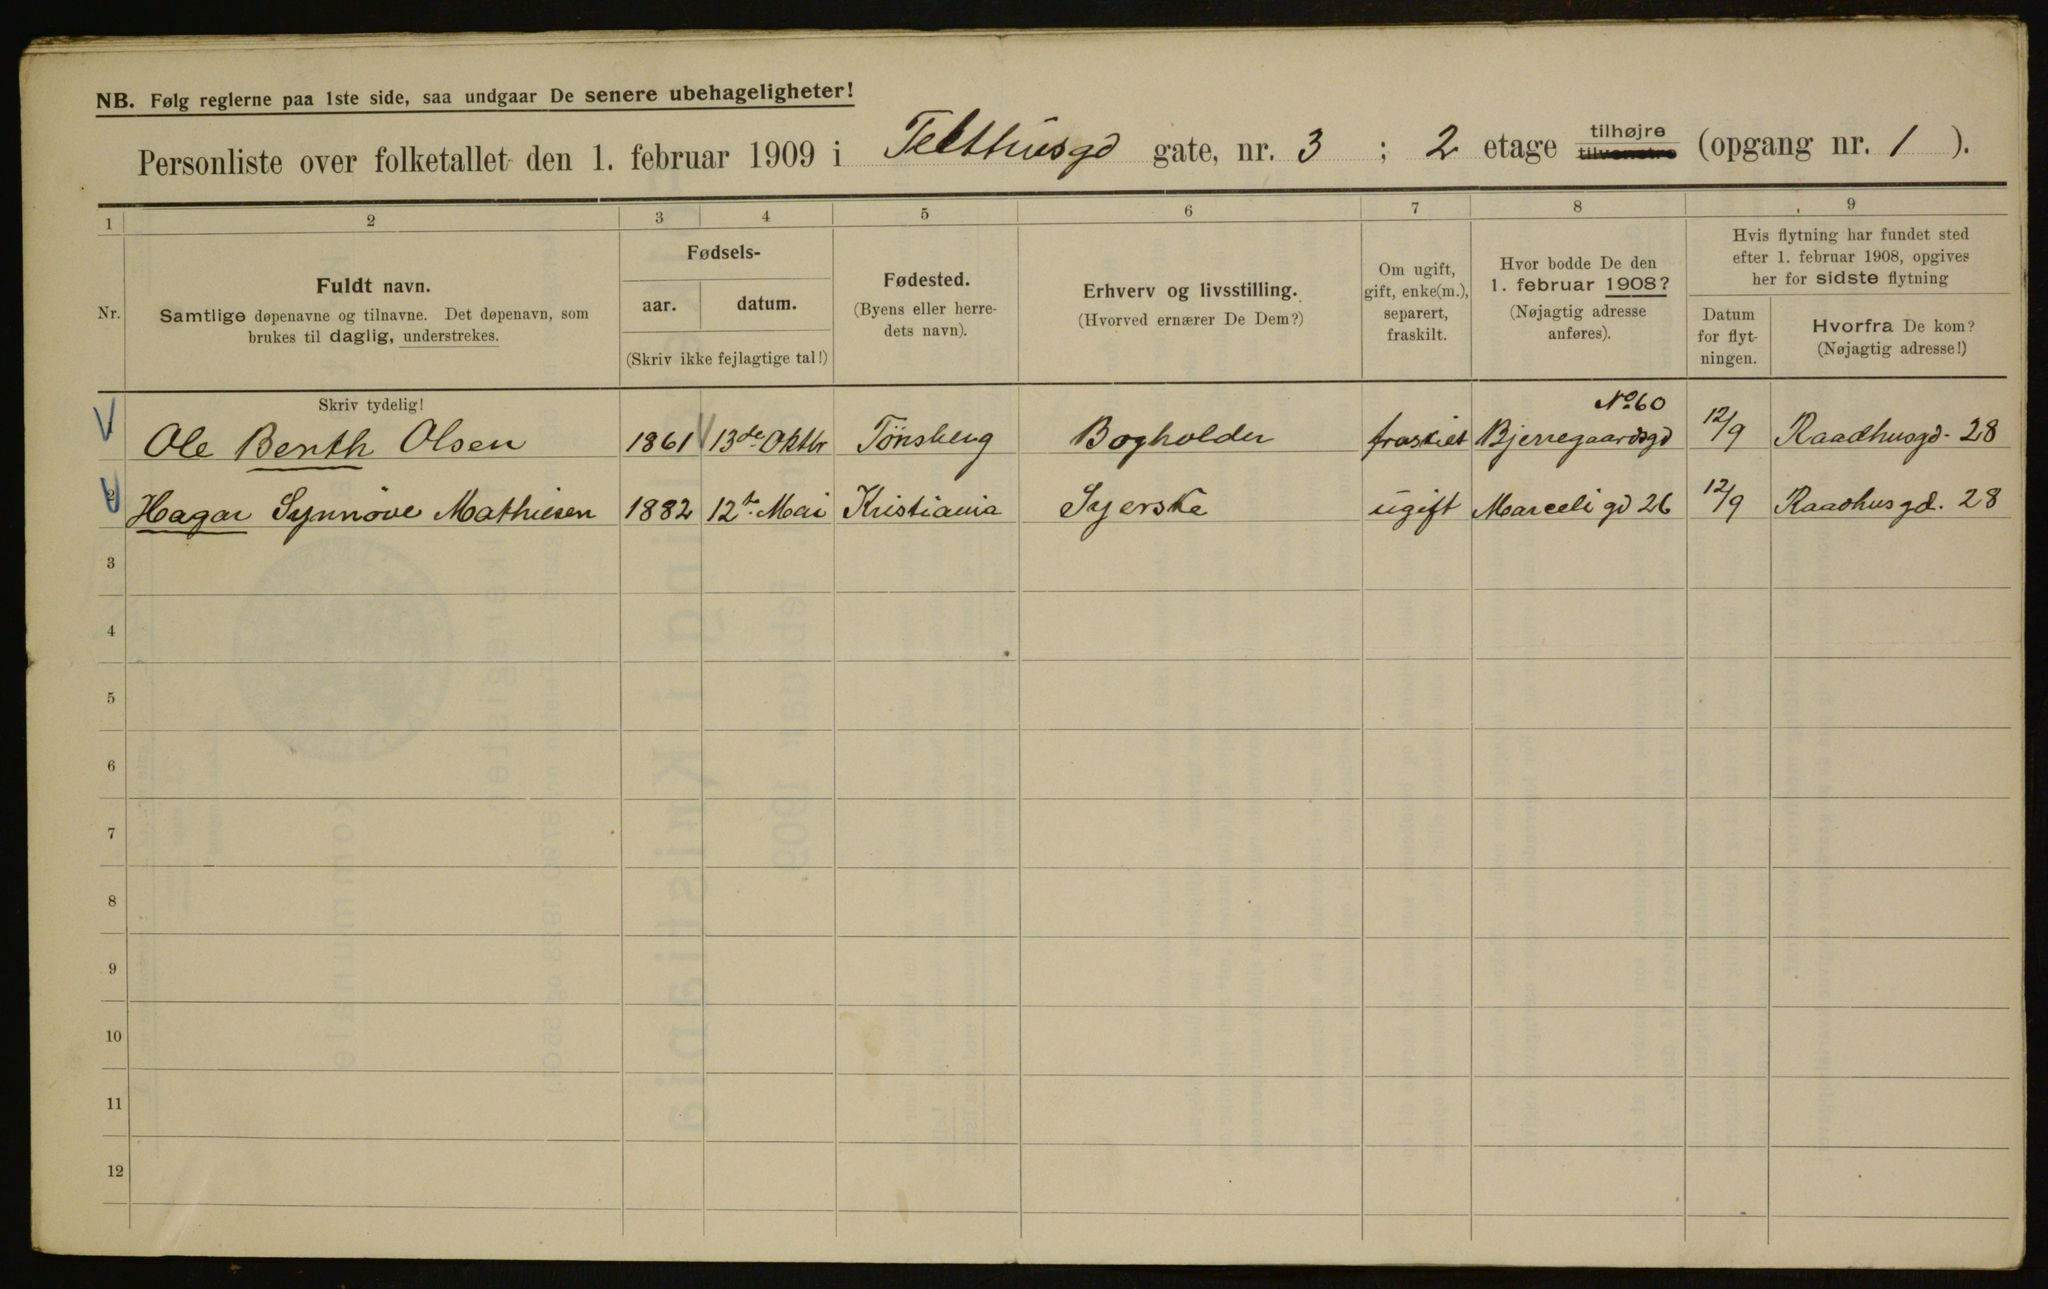 NB. Følg reglerne paa 1ste side, saa undgaar De senere ubehageligheter!
Personliste over folketallet den 1. februar 1909 i Telthusgd gate, nr. 3 ; 2 etage tilhøjre tilvenstre (opgang nr. 1 ).
1 2 3 4 5 6 7 8 9
Nr.
Fuldt navn.
Samtlige døpenavne og tilnavne. Det døpenavn, som
brukes til daglig, understrekes.
Fødsels-
aar. datum.
(Skriv ikke fejlagtige tal!)
Fødested.
(Byens eller herre-
dets navn).
Erhverv og livsstilling.
(Hvorved ernærer De Dem?)
Om ugift,
gift, enke(m.),
separert,
fraskilt.
Hvor bodde De den
1. februar 1908?
(Nøjagtig adresse
anføres).
Hvis flytning har fundet sted
efter 1. februar 1908, opgives
her for sidste flytning
Datum
for flyt-
ningen.
Hvorfra De kom?
(Nøjagtig adresse!)
Skriv tydelig!
No. 60
Ole Benth Olsen 1861 13de Oktbr Tönsberg Bogholder fraskilt Bjerregaardsgd 12/9 Raadhusgd. 28
2 Hagar Synnöve Mathiesen 1882 12te Mai Kristiania Syerske ugift Marceli gd 26 12/9 Raadhusgd. 28
3
4
5
6
7
8
9
10
11
12